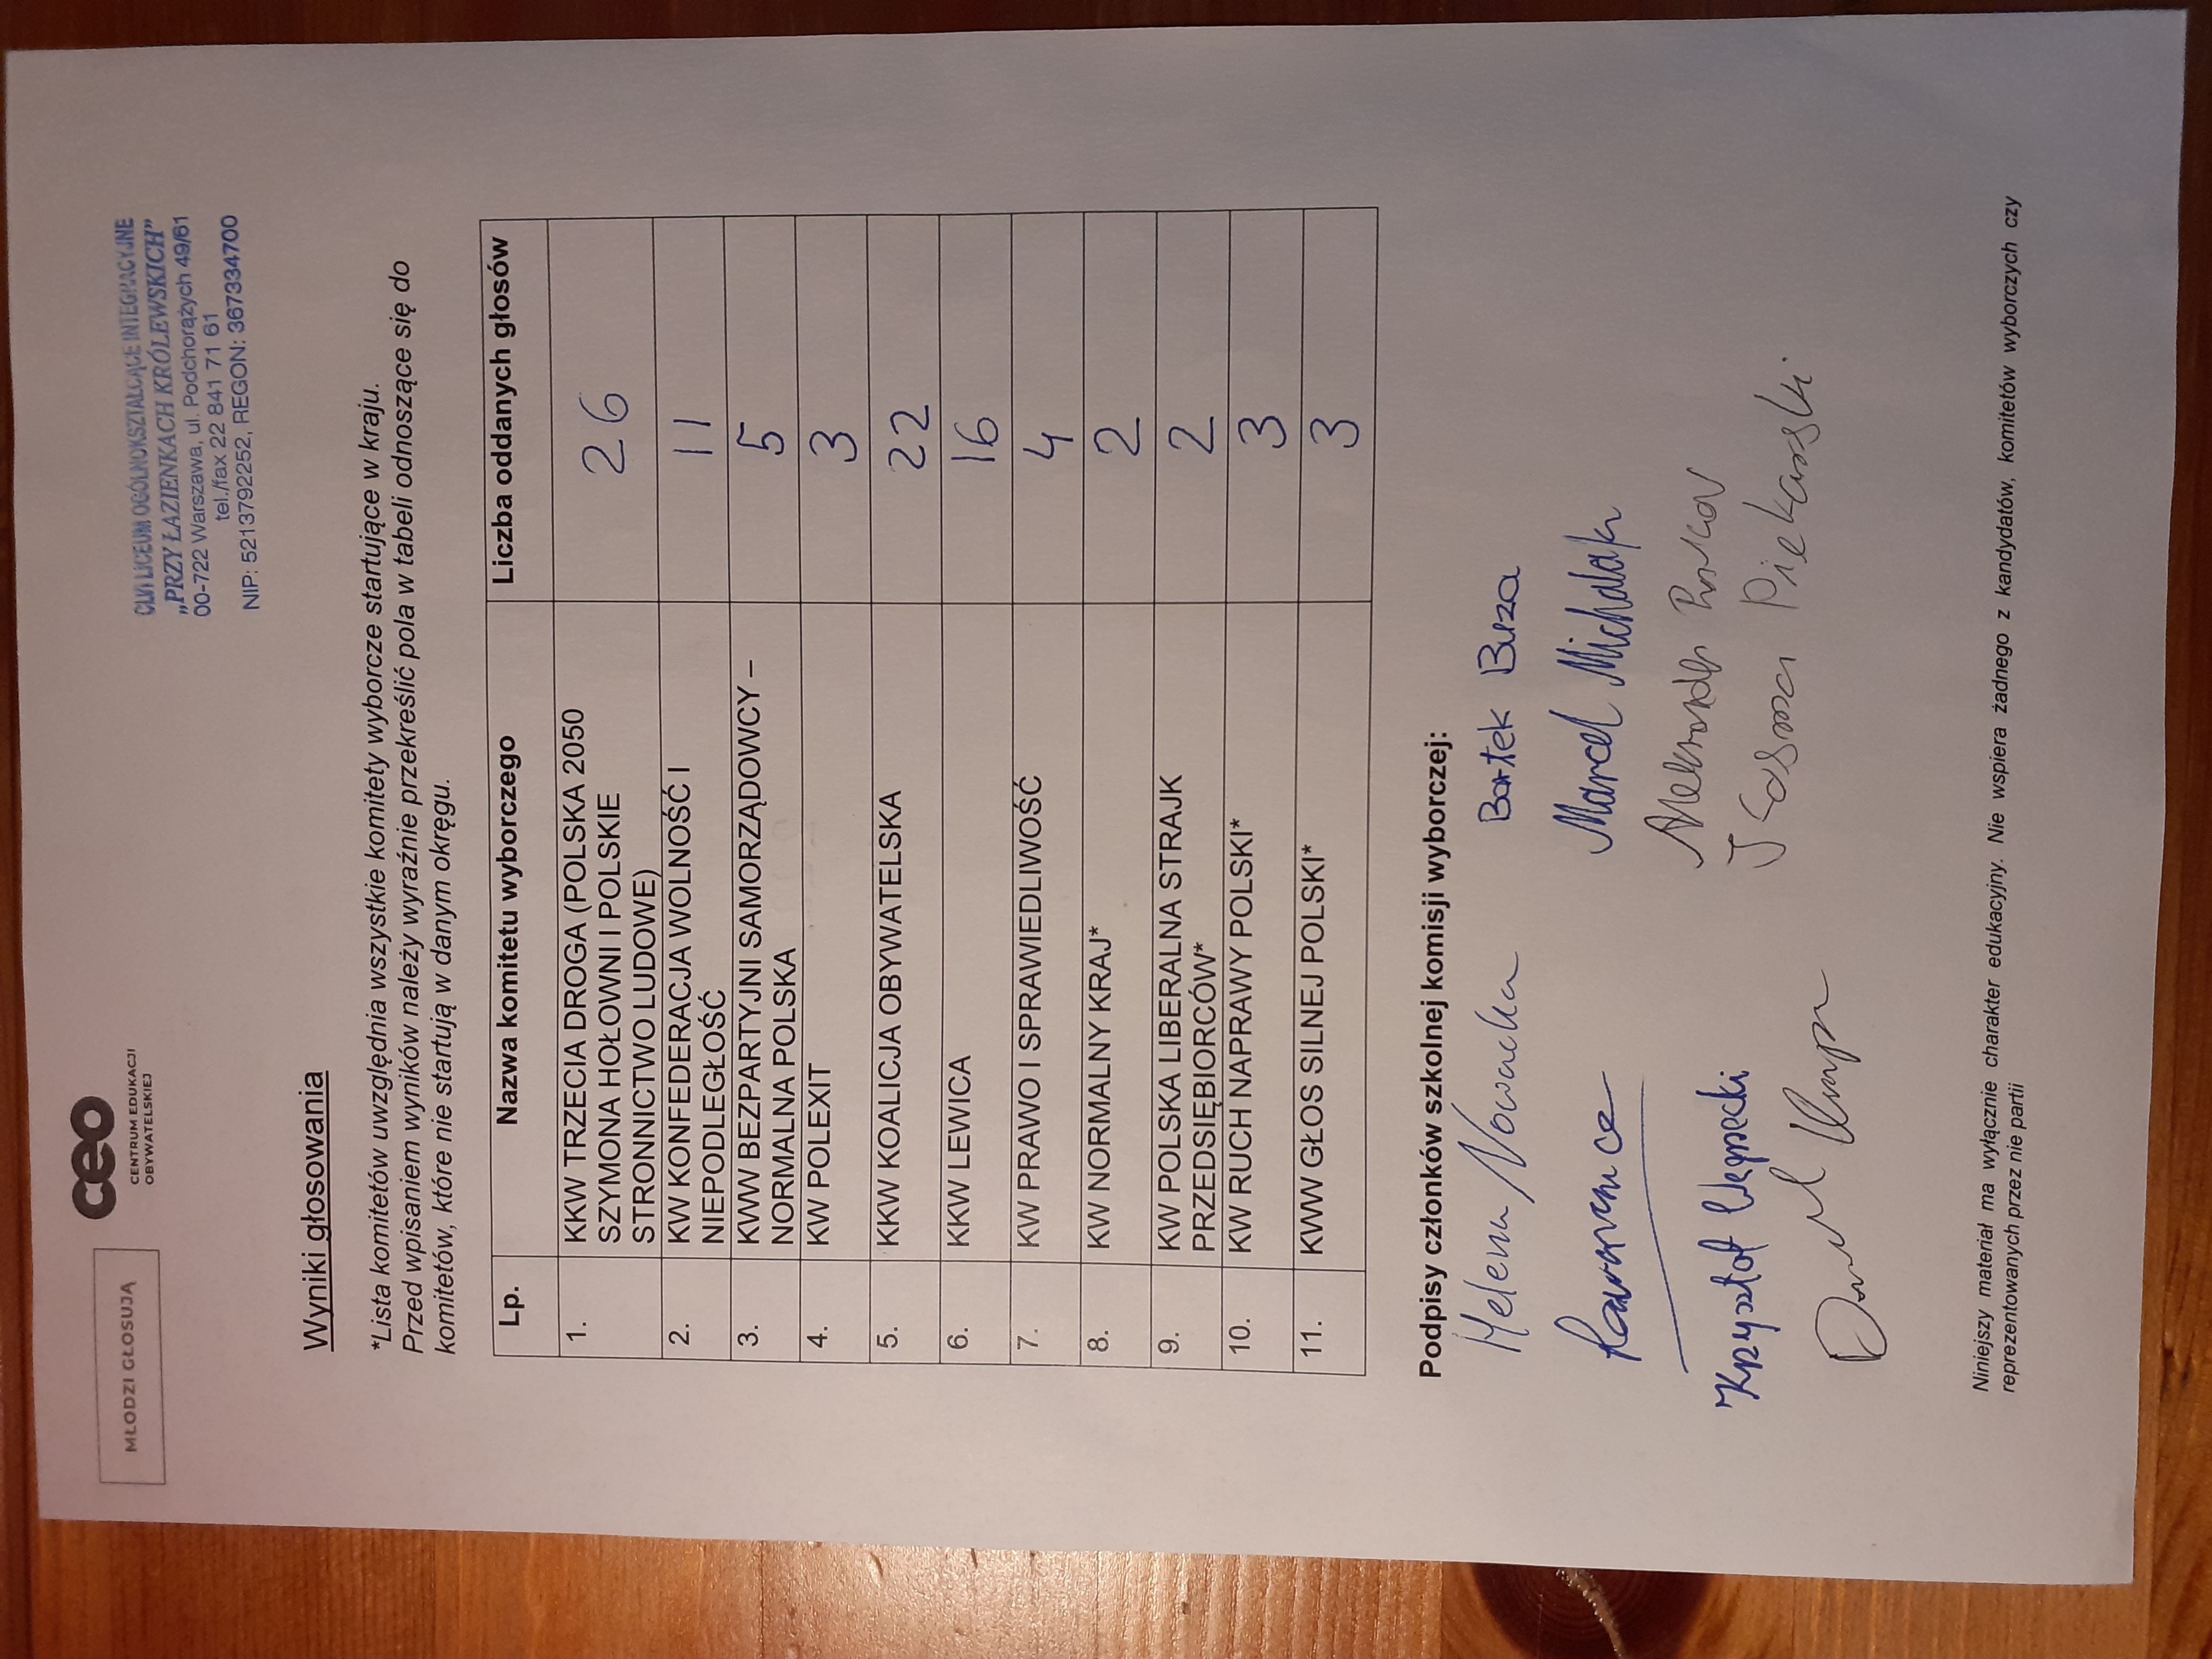 MŁODZI GŁOSUJĄ
ceo
CENTRUM EDUKACJI
OBYWATELSKIEJ
CLVI LICEUM OGÓLNOKSZTAŁCĄCE INTEGRACYJNE
„PRZY ŁAZIENKACH KRÓLEWSKICH”
00-722 Warszawa, ul. Podchorążych 49/61
tel./fax 22 841 71 61
NIP: 5213792252, REGON: 367334700
Wyniki głosowania
*Lista komitetów uwzględnia wszystkie komitety wyborcze startujące w kraju.
Przed wpisaniem wyników należy wyraźnie przekreślić pola w tabeli odnoszące się do
komitetów, które nie startują w danym okręgu.
Lp. Nazwa komitetu wyborczego Liczba oddanych głosów
1. KKW TRZECIA DROGA (POLSKA 2050
SZYMONA HOŁOWNI I POLSKIE
STRONNICTWO LUDOWE) 26
2. KW KONFEDERACJA WOLNOŚĆ I
NIEPODLEGŁOŚĆ 11
3. KWW BEZPARTYJNI SAMORZĄDOWCY –
NORMALNA POLSKA 5
4. KW POLEXIT 3
5. KKW KOALICJA OBYWATELSKA 22
6. KKW LEWICA 16
7. KW PRAWO I SPRAWIEDLIWOŚĆ 4
8. KW NORMALNY KRAJ* 2
9. KW POLSKA LIBERALNA STRAJK
PRZEDSIĘBIORCÓW* 2
10. KW RUCH NAPRAWY POLSKI* 3
11. KWW GŁOS SILNEJ POLSKI* 3
Podpisy członków szkolnej komisji wyborczej:
Helena Nowacka Bartek Burza
Marcel Michalak
Krzysztof Aleksander
Piekarski
Niniejszy materiał ma wyłącznie charakter edukacyjny. Nie wspiera żadnego z kandydatów, komitetów wyborczych czy
reprezentowanych przez nie partii